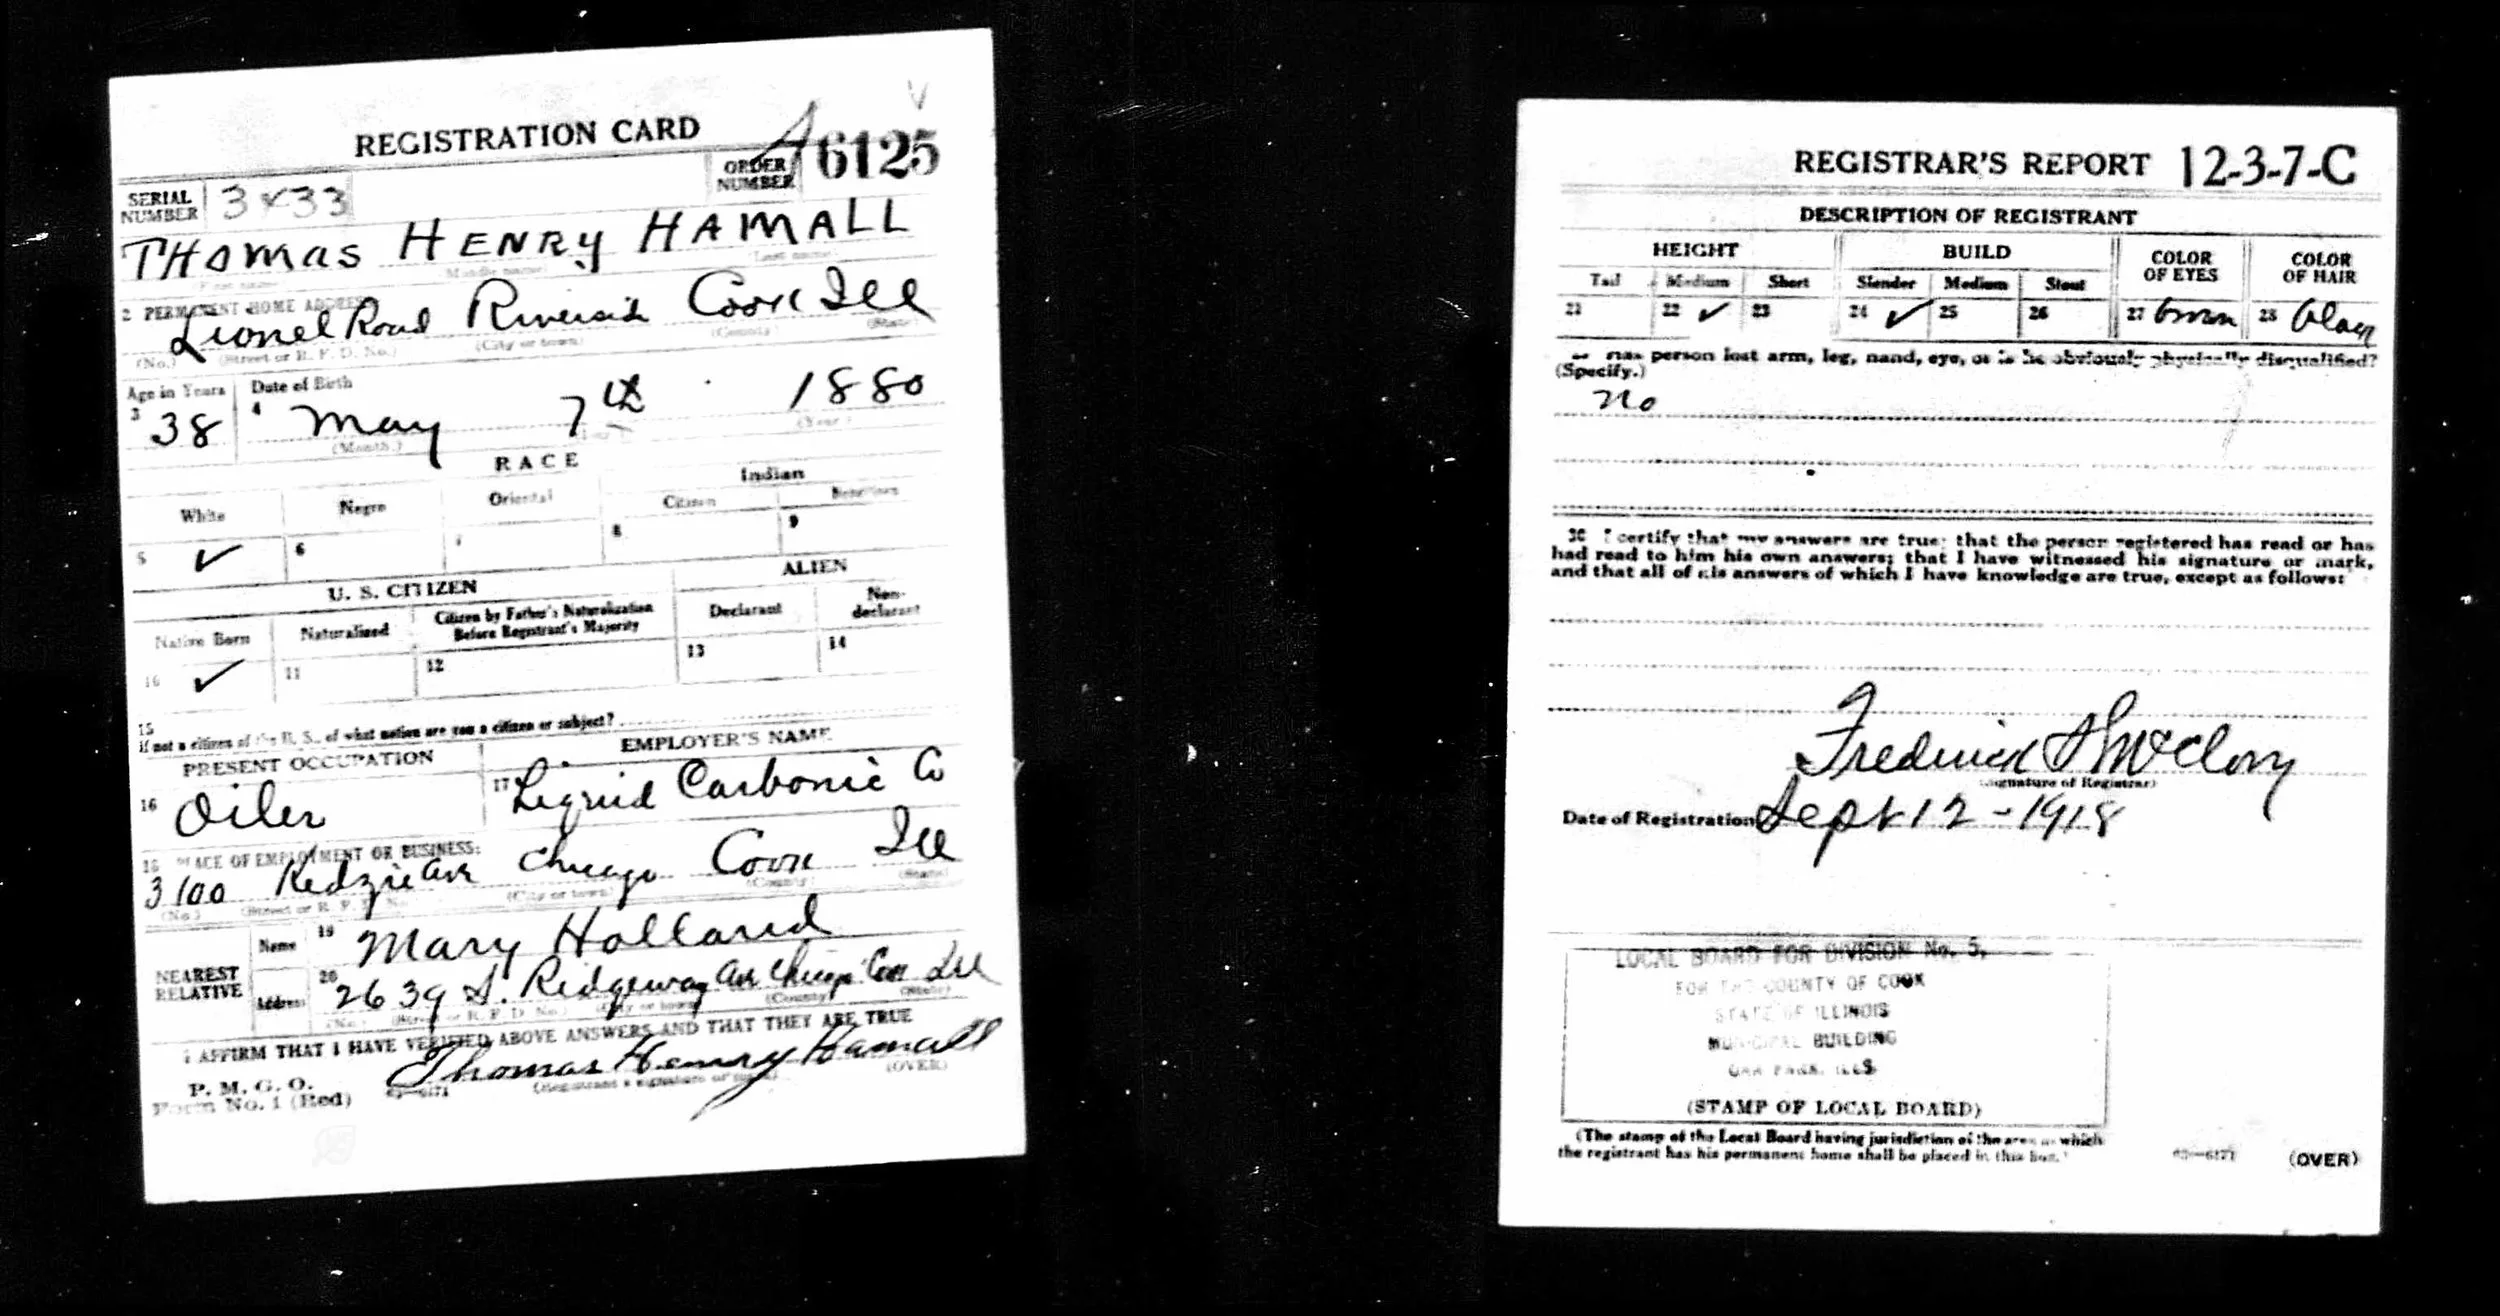 REGISTRATION CARD
SERIAL NUMBER 3433
ORDER NUMBER A 6125
THOMAS HENRY HAMALL
(First name) (Middle name) (Last name)
2 PERMANENT HOME ADDRESS
Lionel Road Riverside Cook Ill
(No.) (Street or R. F. D. No.) (City or town) (County) (State)
Age in Years Date of Birth
3 38 4 May 7th 1880
(Month.) (Day.) (Year.)
RACE
White Negro Oriental Indian
Citizen
5 ✓ 6 7 8 9
U. S. CITIZEN ALIEN
Native Born Naturalized Citizen by Father's Naturalization Before Registrant's Majority Declarant Non-declarant
10 ✓ 11 12 13 14
15
If not a citizen of the U. S., of what nation are you a citizen or subject?
PRESENT OCCUPATION EMPLOYER'S NAME
16 Oiler 17 Liquid Carbonic Co
18 PLACE OF EMPLOYMENT OR BUSINESS:
3100 Kedzie Ave Chicago Cook Ill
(No.) (Street or R. F. D. No.) (City or town) (County) (State)
NEAREST RELATIVE
Name 19 Mary Holland
Address 20 2639 S. Ridgeway Ave Chicago Cook Ill
(No.) (Street or R. F. D. No.) (City or town) (County) (State)
I AFFIRM THAT I HAVE VERIFIED ABOVE ANSWERS AND THAT THEY ARE TRUE
P. M. G. O.
Form No. 1 (Red)
Thomas Henry Hamall
(Registrant's signature or mark) (OVER)
REGISTRAR'S REPORT 12-3-7-C
DESCRIPTION OF REGISTRANT
HEIGHT BUILD COLOR OF EYES COLOR OF HAIR
Tall Medium Short Slender Medium Stout
21 22 ✓ 23 24 ✓ 25 26 27 brown 28 Black
Has person lost arm, leg, hand, eye, or is he obviously physically disqualified?
(Specify.)
no
30 I certify that my answers are true; that the person registered has read or has
had read to him his own answers; that I have witnessed his signature or mark,
and that all of his answers of which I have knowledge are true, except as follows:
Frederick S McClory
(Signature of Registrar)
Date of Registration Sept 12-1918
LOCAL BOARD FOR DIVISION No. 5,
FOR THE COUNTY OF COOK
STATE OF ILLINOIS
MUNICIPAL BUILDING
OAK PARK, ILLS
(STAMP OF LOCAL BOARD)
(The stamp of the Local Board having jurisdiction of the area in which
the registrant has his permanent home shall be placed in this box.)
(OVER)